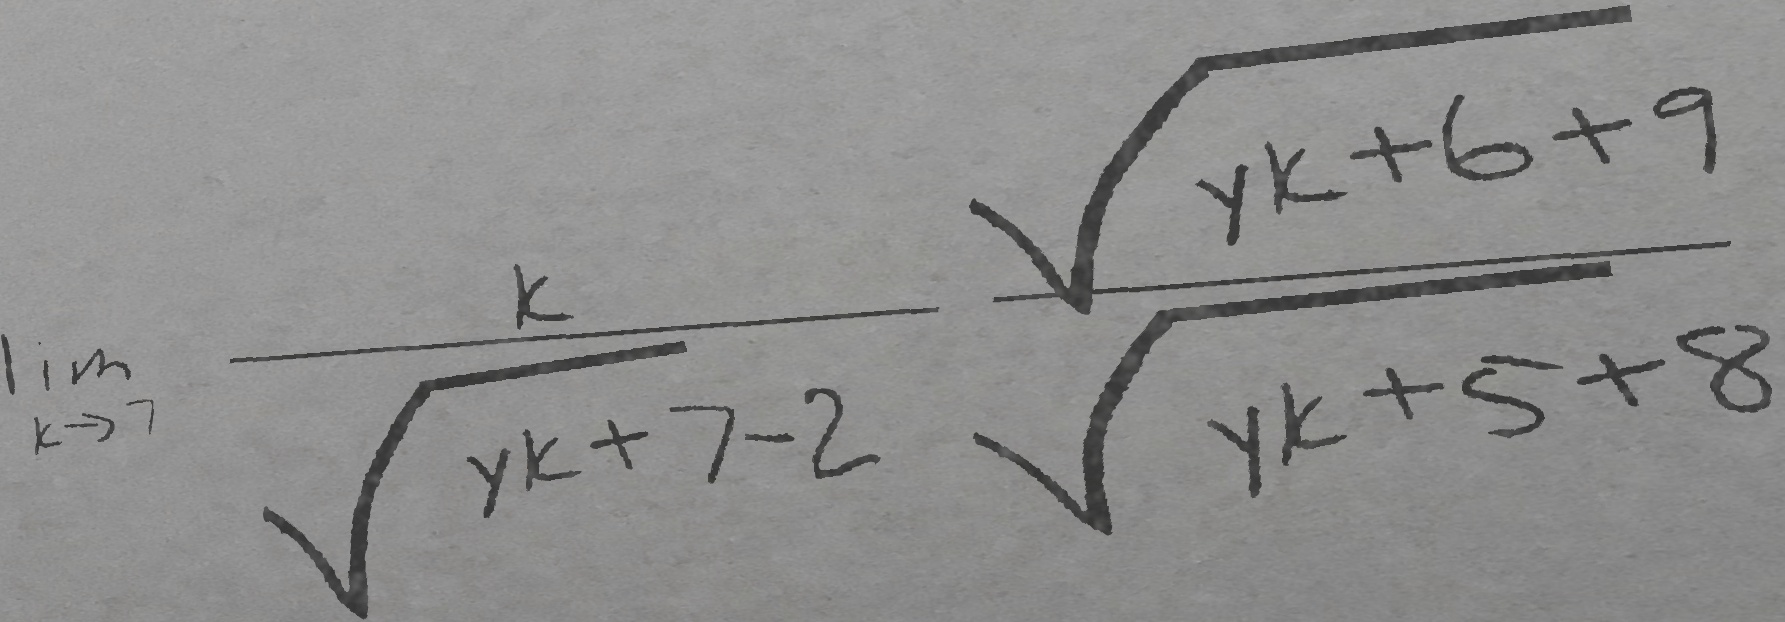 \lim_{k \to 7} \frac{k}{\sqrt{yk+7}-2} \frac{\sqrt{yk+6}+9}{\sqrt{yk+5}+8}